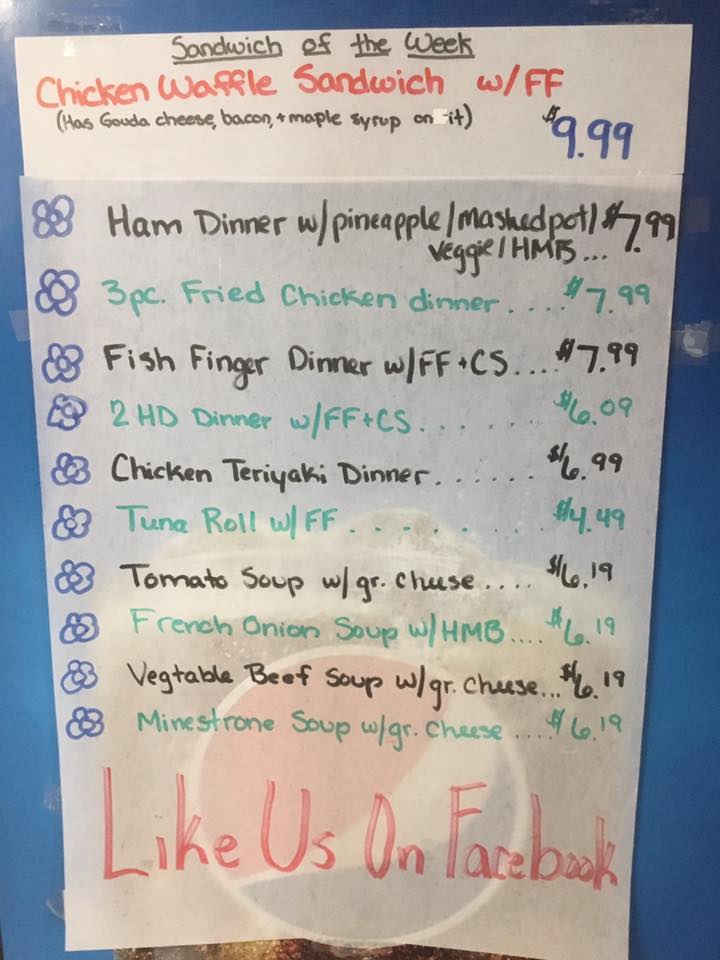 Sandwich of the Week
Chicken Waffle Sandwich w/FF
(Has Gouda cheese, bacon, + maple syrup on it) $9.99
Ham Dinner w/pineapple/mashed pot/ $7.99
veggie/HMB...
3pc. Fried Chicken dinner.... $7.99
Fish Finger Dinner w/FF+CS.... $7.99
2 HD Dinner w/FF+CS...... $6.09
Chicken Teriyaki Dinner...... $6.99
Tuna Roll w/FF....... $4.49
Tomato Soup w/gr. cheese.... $6.19
French Onion Soup w/HMB.... $6.19
Vegtable Beef Soup w/gr. cheese... $6.19
Minestrone Soup w/gr. cheese.... $6.19
Like Us On Facebook